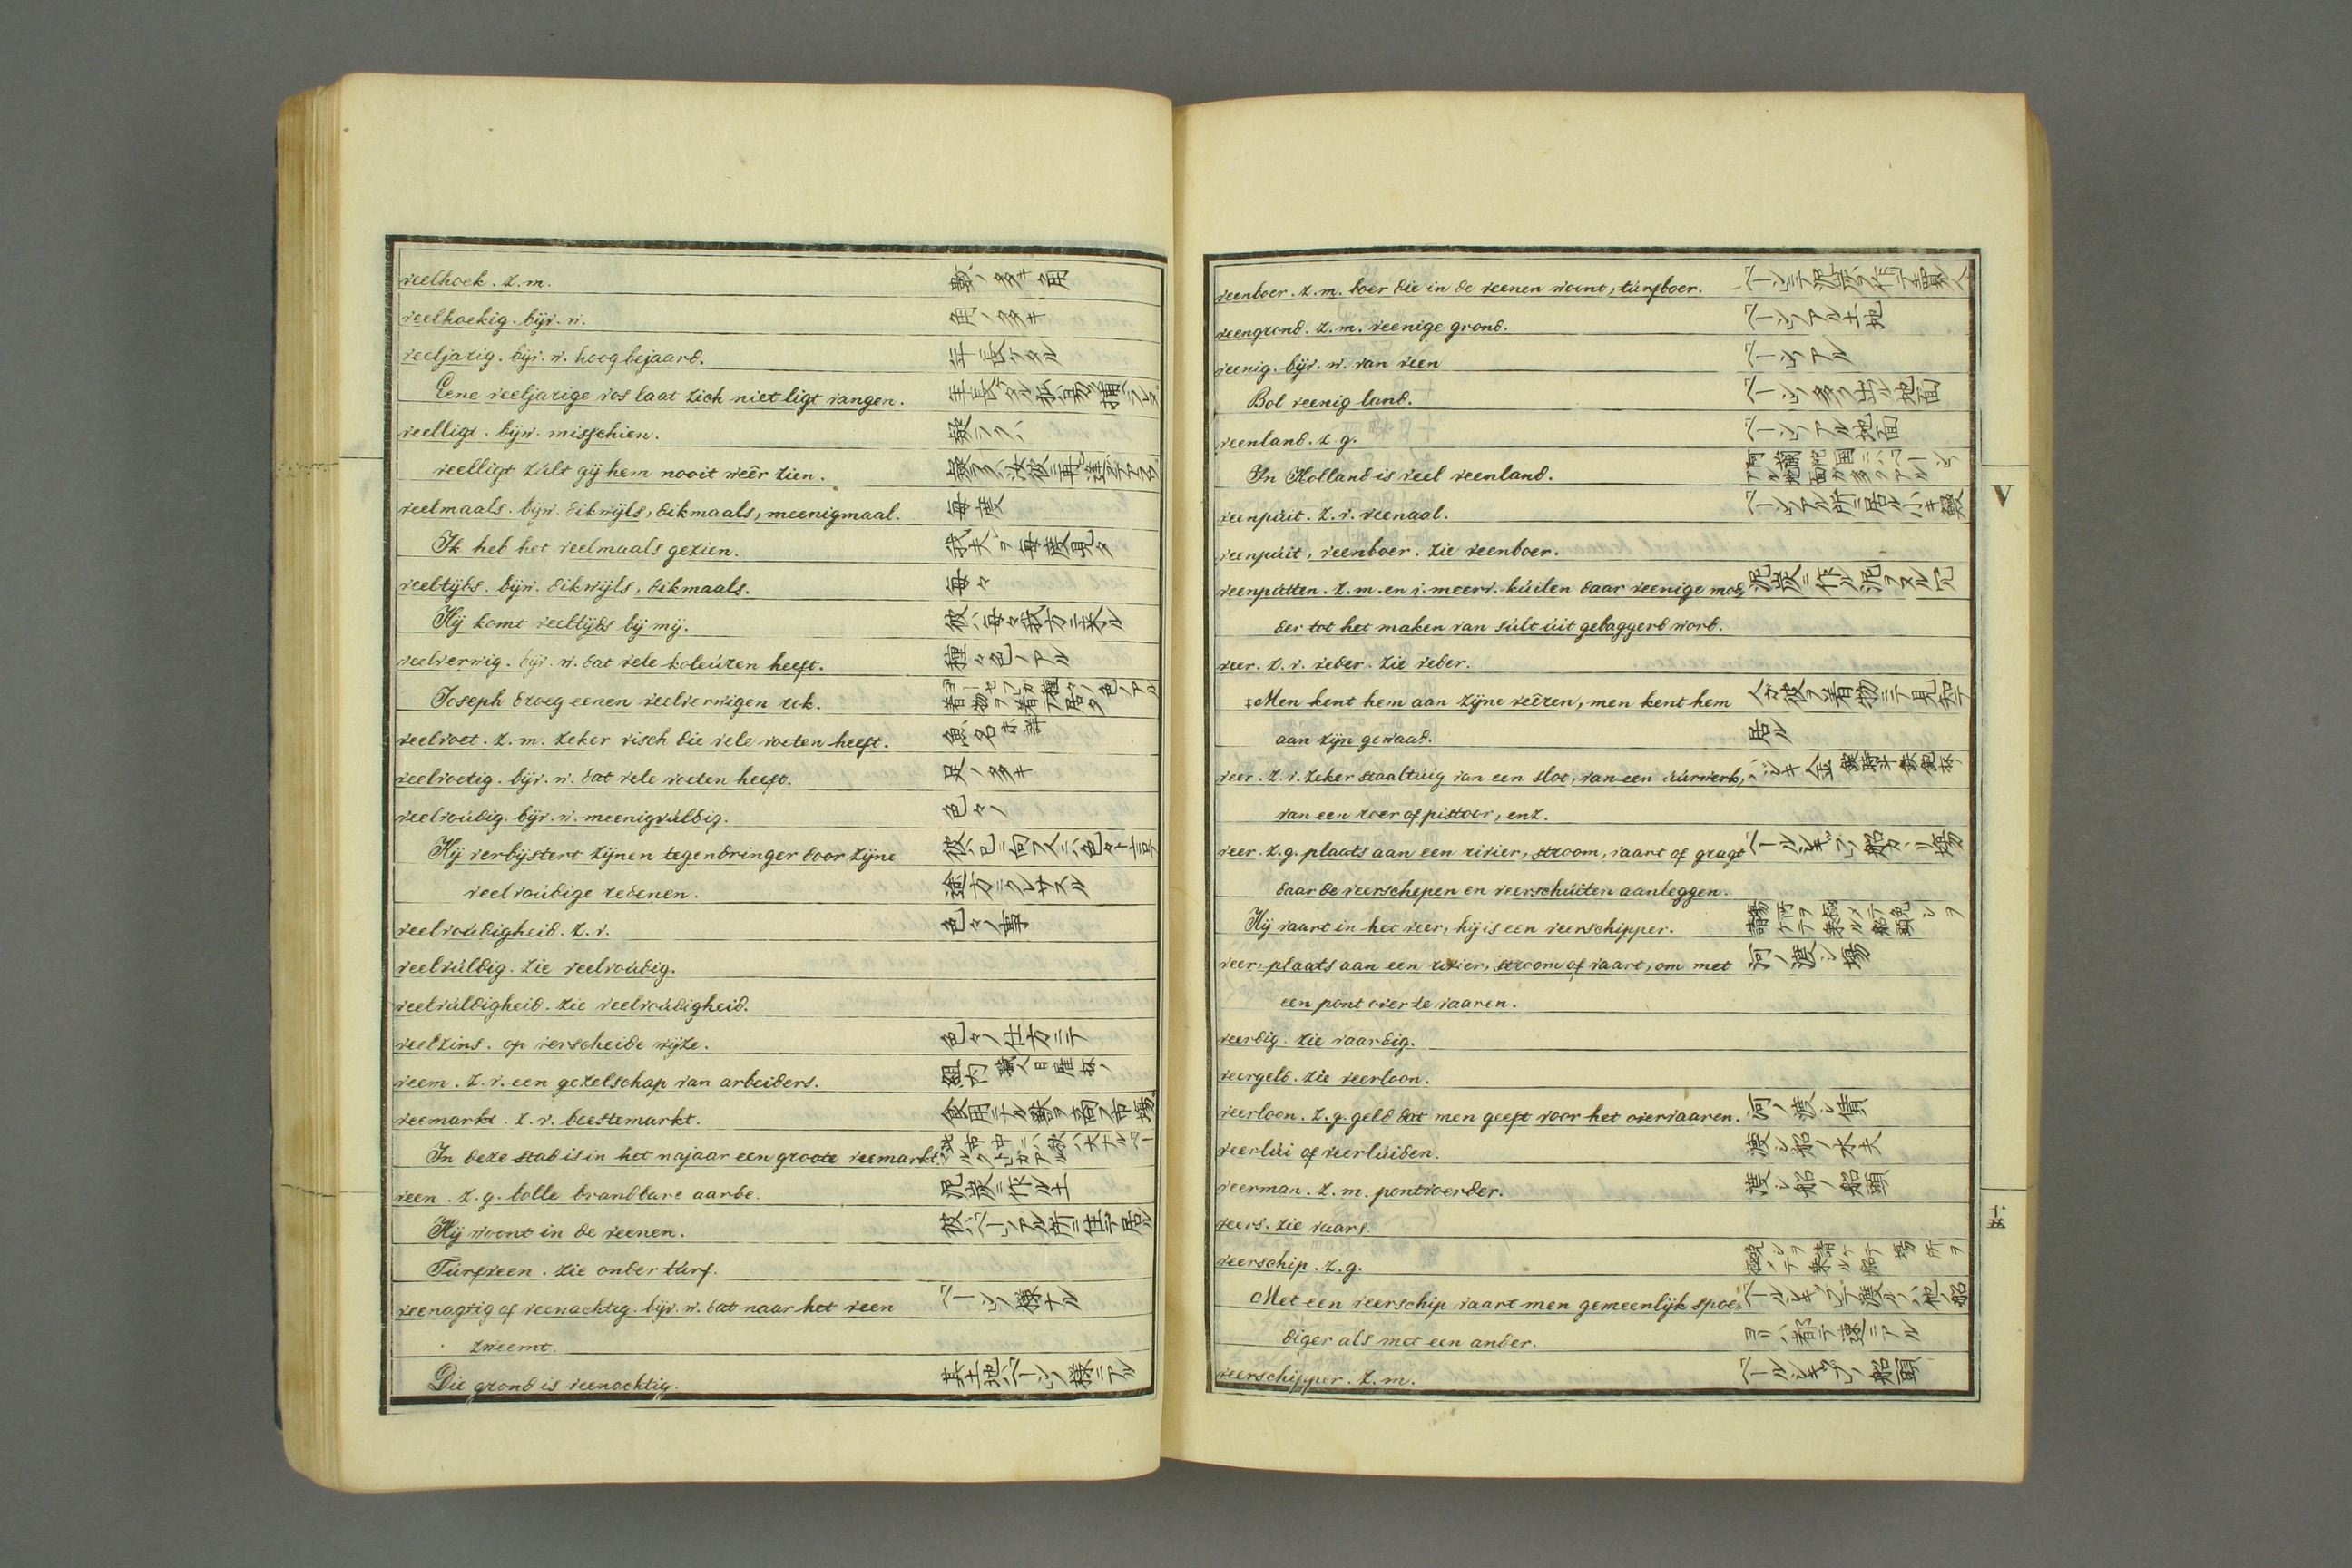 veelhoek. z.m. 數ノ多キ角
veelhoekig. bijv. w. 角ノ多キ
veeljarig. bijv. w. hoog bejaard. 年長ケタル
Eene veeljarige vos laat zich niet ligt vangen. 年長ケタル狐ハ易ク捕ラレヌ
veelligt. bijw. misschien. 疑ラクハ
veelligt zúlt gij hem nooit weêr zien. 疑ラクハ汝彼ニ再ヒ逢
veelmaals. bijw. dikwijls, dikmaals, meenigmaal. 毎度
Ik heb het veelmaals gezien. 我夫ヲ毎度見タ
veeltijds. bijw. dikwijls, dikmaals. 毎々
Hij komt veeltijds bij mij. 彼ハ毎々我方ニ来ル
veelverwig. bijv. w. dat vele koleúren heeft. 種々色ノアル
Joseph droeg eenen veelverwigen rok. ヨーセフガ種々ノ色ノアル着物ヲ着テ居タ
veelvoet. z.m. zeker visch die vele voeten heeft. 魚名
veelvoetig. bijv. w. dat vele voeten heeft. 足ノ多キ
veelvoúdig. bijv. w. meenigvúldig. 色々ノ
Hij verbijstert zijnen tegendringer door zijne 彼ハ己ニ向フ人ニハ色々ト言
veelvoúdige redenen. 途方ニクレサスル
veelvoúdigheid. z.v. 色々ノ事
veelvúldig. zie veelvoúdig.
veelvúldigheid. zie veelvoúdigheid.
veelzins. op verscheide wijze. 色々ノ仕方ニテ
veem. z.v. een gezelschap van arbeiders. 組内 職人日雇抔ノ
veemarkt. z.v. beestemarkt. 食用ニナル獣ヲ商フ市場
In deze stad is in het najaar een groote veemarkt.
veen. z.g. bolle brandbare aarde. 泥炭ニ作ル土
Hij woont in de veenen. 彼ハベーンノアル所ニ住テ居ル
Túrfveen. zie onder túrf.
veenagtig of veenachtig. bijv. w. dat naar het veen ベーンノ様ナル
zweemt.
Die grond is veenachtig. 其土地ハベーンノ様ニアル
veenboer. z.m. boer die in de veenen woont, túrfboer. ベーンニテ泥炭ヲ作テ商買人
veengrond. z.m. veenige grond. ベーンノアル土地
veenig. bijv. w. van veen ベーンノアル
Bol veenig land. ベーンノ多ク出ル地面
veenland. z.g. ベーンノアル地面
In Holland is veel veenland. 阿蘭陀国ニハベーンノアル地面ガ多クアル
veenpúit. z.v. veenaal. ベーンノアル所ニ居ル小キ鰻
veenpúit, veenboer. zie veenboer.
veenpútten. z.m. en v. meerv. kúilen daar veenige mod, 泥炭ニ作ル泥ヲトル穴
der tot het maken van súlt úit gebaggerd word.
veer. z.v. veder. zie veder.
Men kent hem aan zijne veêren, men kent hem 人ガ彼ヲ着物ニテ見知テ
aan zijn gewaad. 居ル
veer. z.v. zeker staaltúig van een slot, van een úúrwerk, ハジキ金 錠時斗鉄炮抔ノ
van een roer of pistoor, enz.
veer. z.g. plaats aan een rivier, stroom, vaart of gragt ベールシキップノ船カヽリ場
daar de veerschepen en veerschúiten aanleggen.
Hij vaart in het veer, hij is een veerschipper.
veer, plaats aan een rivier, stroom of vaart, om met 河ノ渡シ場
een pont over te vaaren.
veerdig. zie vaardig.
veergeld. zie veerloon.
veerloon. z.g. geld dat men geeft voor het overvaaren. 河ノ渡シ賃
veerlúi of veerlúiden. 渡シ船ノ水夫
veerman. z.m. pontvoerder. 渡シ船ノ船頭
veers. zie vaars.
veerschip. z.g.
Met een veerschip vaart men gemeenlijk spoe= ベールシキップニテ渡ルハ他ノ船
diger als met een ander. ヨリハ都テ速ニアル
veerschipper. z.m. ベールシキップノ船頭
V
十五